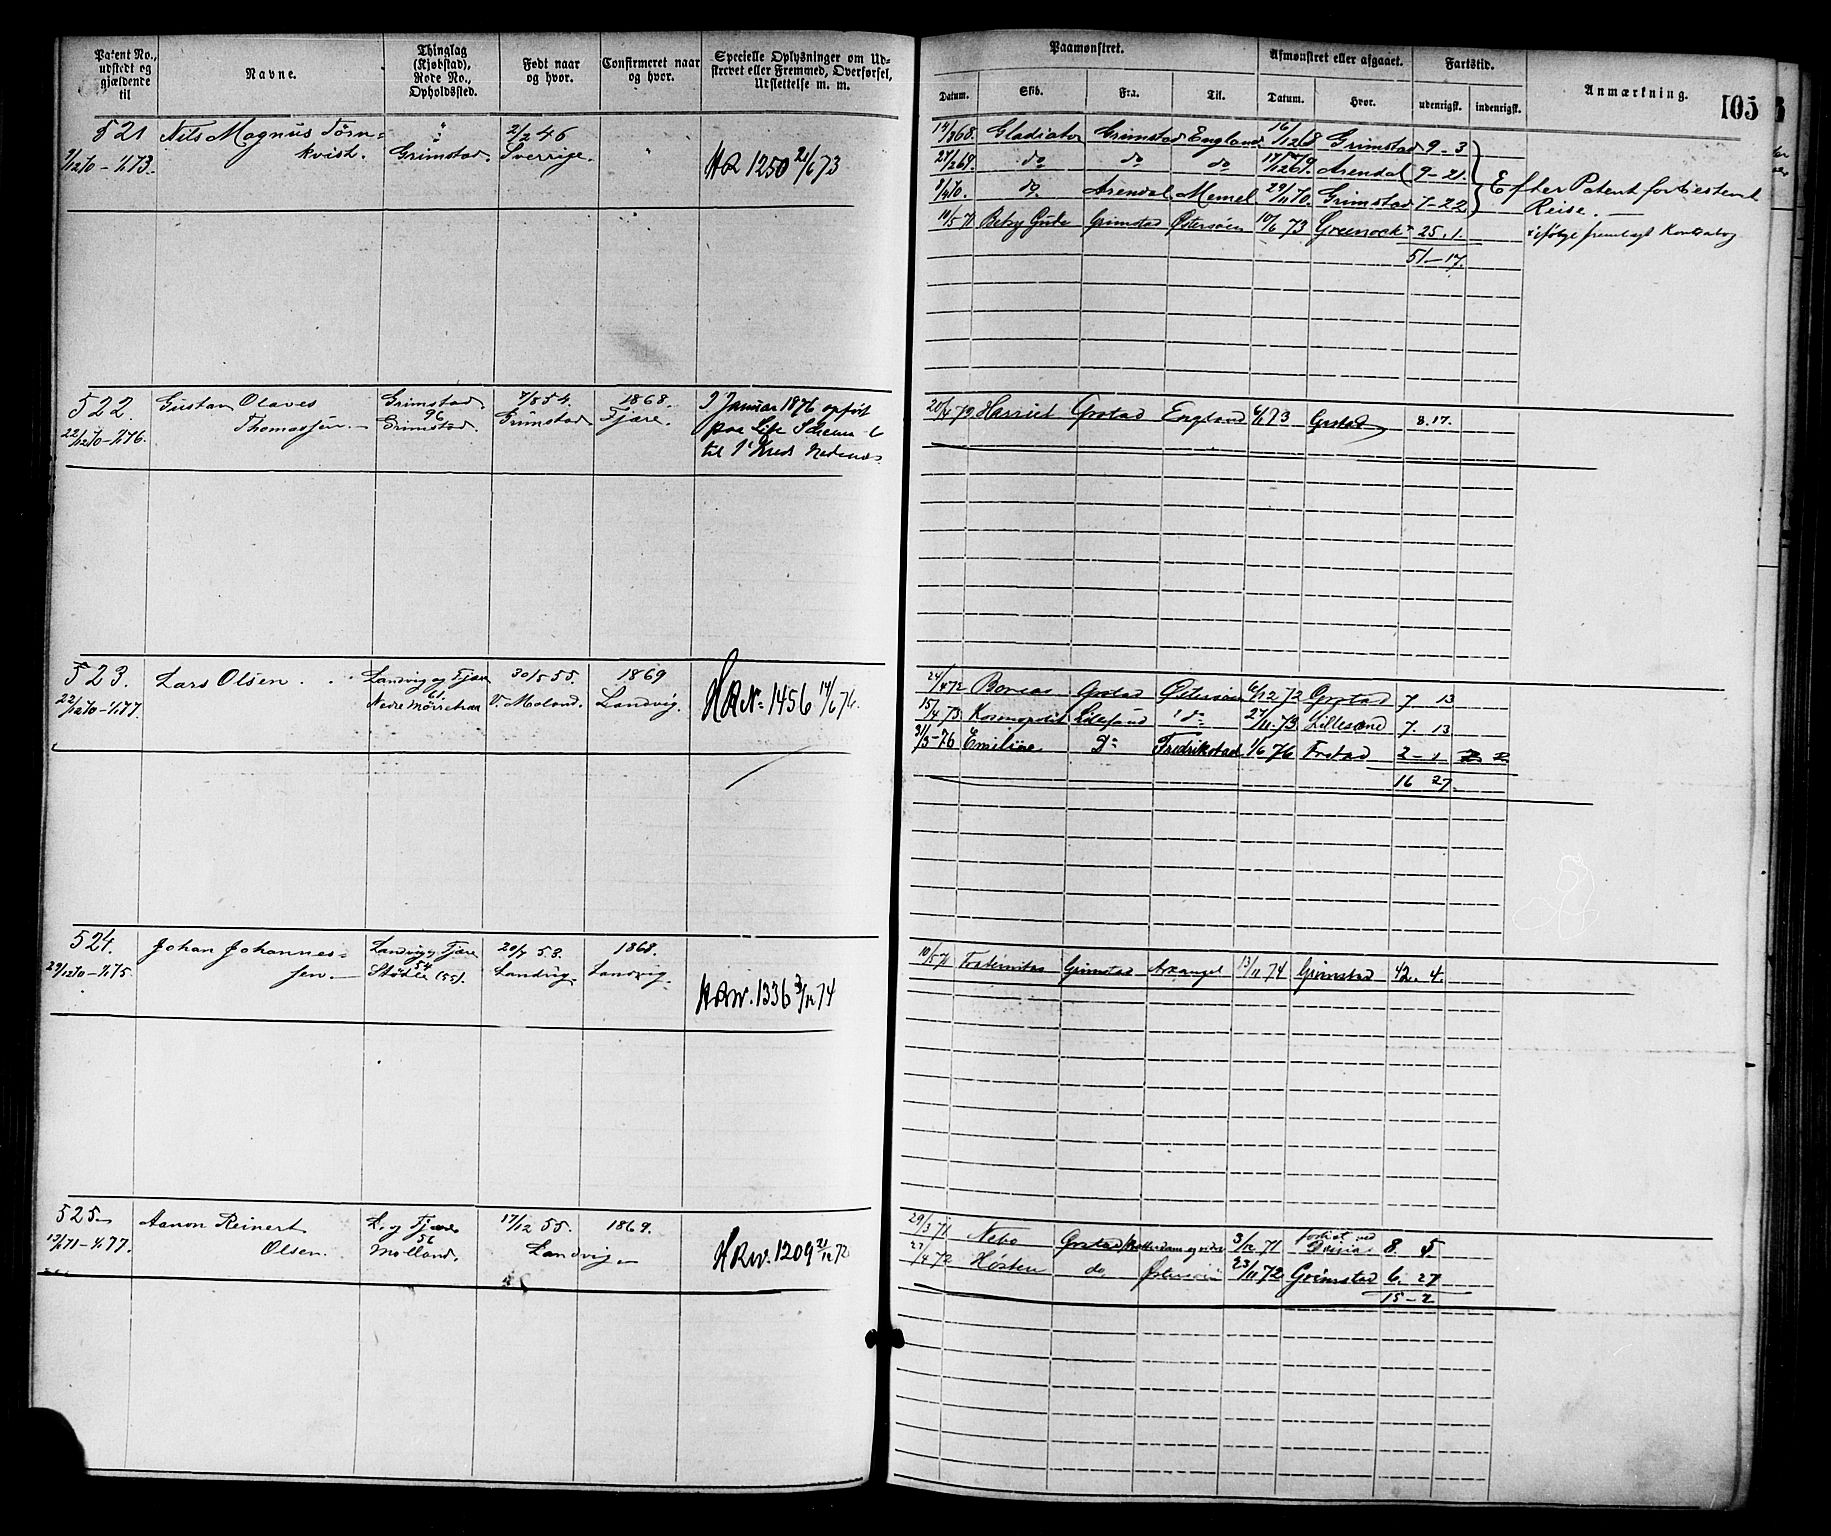 Patent No., udstedt og gjældende til
Navne.
Thinglag (Kjøbstad), Rode No., Opholdssted.
Født naar og hvor.
Confirmeret naar og hvor.
Specielle Oplysninger om Udskrevet eller Fremmed, Overførsel, Udslettelse m. m.
Paamønstret.
Afmønstret eller afgaaet.
Fartstid.
Anmærkning.
105
Datum.
Skib.
Fra.
Til.
Datum.
Hvor.
udenrigsk.
indenrigsk.
521 Nils Magnus Törn= " 2/2 46 "
2/12 70 – 1/1 73. kvist. Grimstad. Sverrige. HR 1250 21/6 73
14/3 68. Gladiator Grimstad England 16/12 68 Grimstad 9–3
24/2 69. do do do 17/12 69. Arendal 9–21.
8/4 70. do Arendal Memel 29/11 70. Grimstad 7–22
Efter Patent for bestemt
Reise.
10/5 71 Betzy Gude Grimstad Østersøen 10/6 73 Greenock 25.1.
ifølge fremlagt
51–17.
522. Gustav Olaves Grimstad. 7/8 54. 1868. I Januar 1876 opført
22/12 70 – 1/1 76. Thomassen. 96 Grimstad. Grimstad. Fjære. paa
til 1' Kreds Nedenæs
20/4 72 Harriet Grstad England 6/11 73 Grstad 8.17.
523. Lars Olsen. Landvig og Fjære 30/5 55. 1869
22/12 70 – 1/1 77. 61. Nedre Mørreheia V. Moland. Landvig. HR No 1456 14/6 76.
24/4 72 Boreas Grstad Østersøen 6/12 72 Grstad 7 13
15/4 73. Kosmopolit Lillesand do 27/11 73 Lillesand 7. 13
31/3–76 Emilie do Fredrikstad 1/6 76 Frstad 2–1
16 27.
524. Johan Johannes= Landvig og Fjære 20/7 53. 1868.
29/12 70 – 1/1 75. sen. 54 (55). Landvig. Landvig. HR No. 1336 3/12 74
10/5 71 Fraternitas Grimstad Arkangel 13/11 74 Grimstad 42. 4.
525. Aanon Reinert L. og Fjære 17/12 55. 1869.
13/1 71 – 1/1 77. Olsen. 56 Molland. Landvig. HR No. 1209 21/12 72
29/3 71 Nebo Grstad 3/12 71 forlist ved 8 5
27/4 72 Høsten do Østersøen 23/11 72 Grimstad 6. 27
15–2